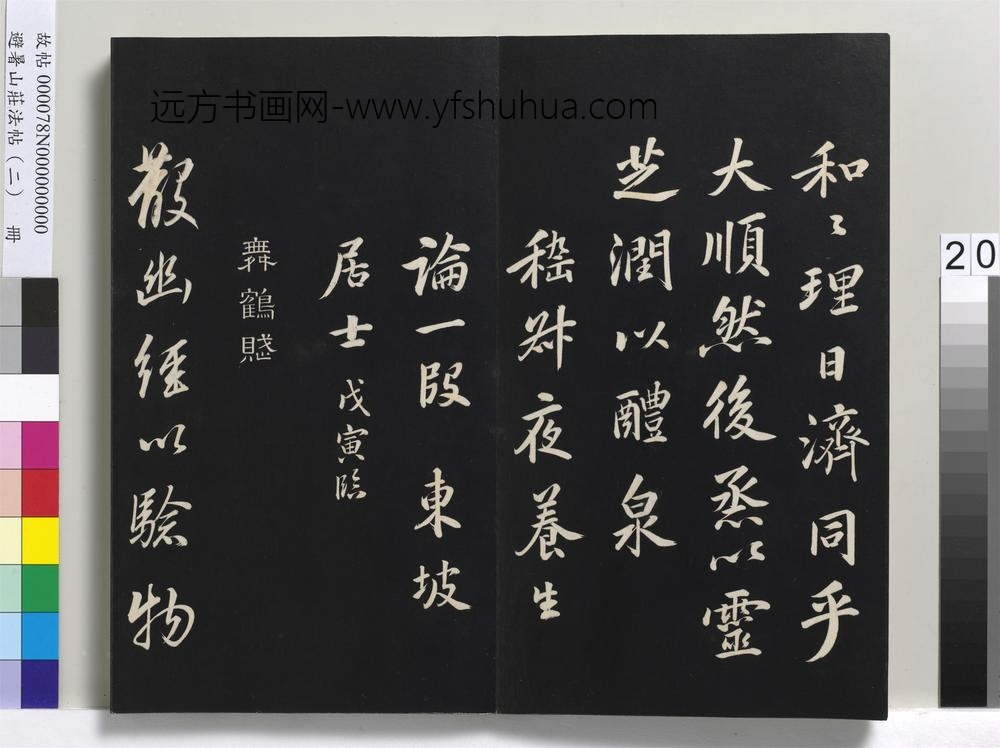 远方书画网-www.yfshuhua.com
和〻理日濟同乎
大順然後烝以靈
芝潤以醴泉
嵇叔夜養生
論一段 東坡
居士 戊寅臨
舞鶴賦
散幽經以驗物
故帖 000078N000000000
避暑山莊法帖(二) 冊
20